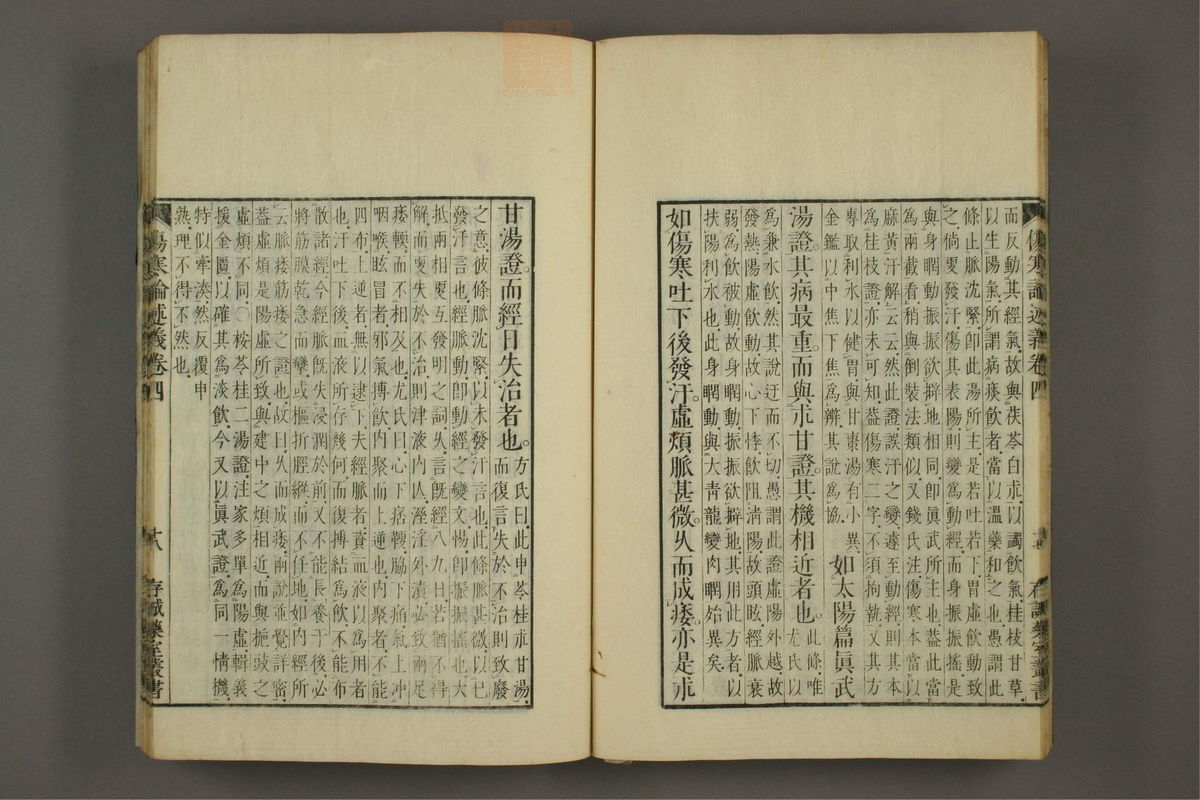 傷寒論述義卷四　十七　存誠藥室叢書
而反動其經氣故與茯苓白朮以蠲飲氣桂枝甘草
以生陽氣所謂病痰飲者當以溫藥和之也愚謂此
條止脈沈緊卽此湯所主是若吐若下胃虛飲動致
之倘更發汗傷其表陽則變爲動經而身振振搖是
與身瞤動振振欲擗地相同卽眞武所主也蓋此當
爲兩截看稍與倒裝法類似又錢氏注傷寒本當以
麻黃汗解云云然此證誤汗之變遽至動經則其本
爲桂枝證亦未可知蓋傷寒二字不須拘執又其方
專取利水以健胃與甘棗湯有小異
金鑑以中焦下焦爲辨其說爲協
如太陽篇眞武
湯證其病最重而與朮甘證其機相近者也
此條唯
尤氏以
爲兼水飲然其說迂而不切愚謂此證虛陽外越故
發熱陽虛飲動故心下悸飲阻淸陽故頭眩經脈衰
弱爲飲被動故身瞤動振振欲擗地其用此方者以
扶陽利水也此身瞤動與大靑龍變肉瞤始異矣
如傷寒吐下後發汗虛煩脈甚微久而成痿亦是朮
甘湯證而經日失治者也
方氏曰此申苓桂朮甘湯
而復言失於不治則致廢
之意彼條脈沈緊以未發汗言也此條脈甚微以已
發汗言也經脈動卽動經之變文惕卽振振搖也大
抵兩相更互發明之詞久言旣經八九日若猶不得
解而更失於不治則津液內亾溼淫外漬必致兩足
痿輭而不相及也尤氏曰心下痞鞕脇下痛氣上冲
咽喉眩冒者邪氣搏飲內聚而上逆也內聚者不能
四布上逆者無以逮下夫經脈者資血液以爲用者
也汗吐下後血液所存幾何而復搏結爲飲不能布
散諸經今經脈旣失浸潤於前又不能長養于後必
將筋膜乾急而攣或樞折脛縱而不任地如內經所
云脈痿筋痿之證也故曰久而成痿兩說並覺詳密
蓋虛煩是陽虛所致與建中之煩相近而與梔豉之
虛煩不同○桉苓桂二湯證注家多單爲陽虛輯義
援金匱以確其爲淡飲今又以眞武證爲同一情機
特似牽湊然反覆申
熱理不得不然也
傷寒論述義卷四　十八　存誠藥室叢書